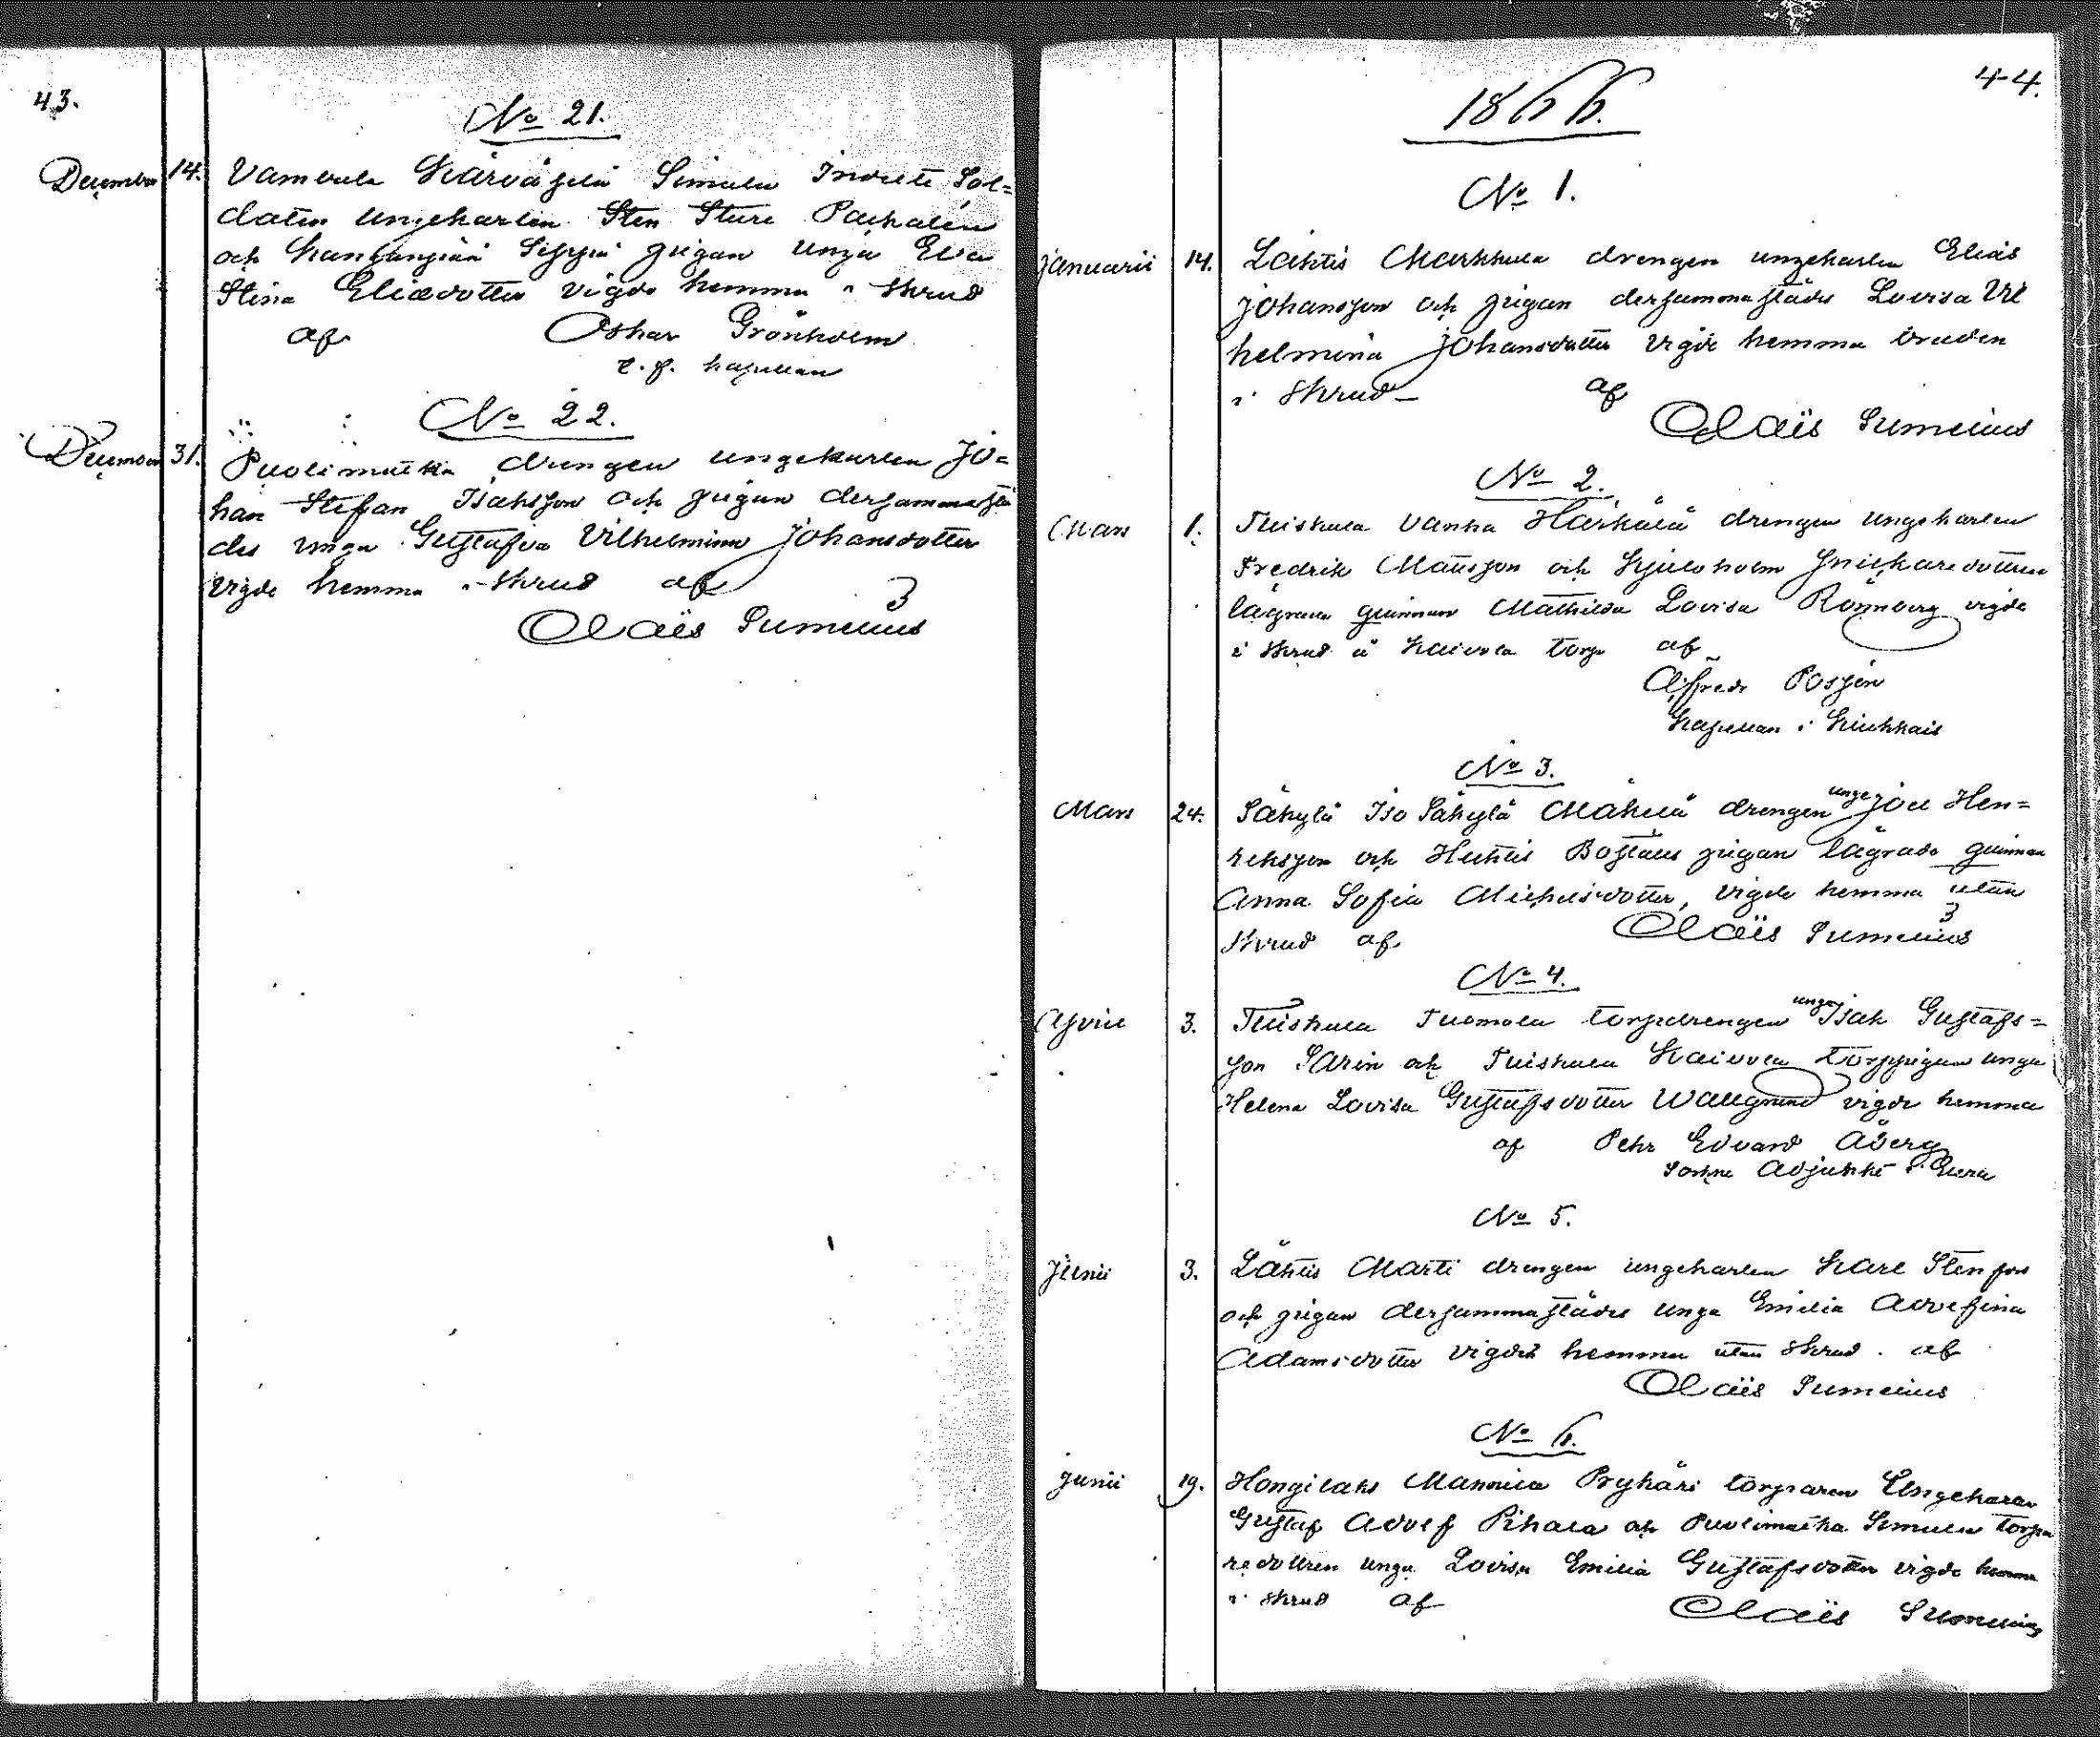 43.
No 21.
December 14. Vambula Kärväselä Simula Indelte Sol=
daten Ungekarlen Sten Sture Pachalén
och Kangänpää Seppä pigan unga Eva
Stina Eliædotter vigde hemma i Skrud
af Oskar Grönholm
t. f. kapellan
No 22.
December 31. Puolimatka drengen ungekarlen Jo=
han Stefan Isaksson och pigan dersammastä
des unga Gustafva Vilhelmina Johansdotter
vigde hemma i Skrud af
Claës Sumelius
44.
1866.
No 1.
Januarii 14. Lähtis Markkula drengen ungekarlen Elias
Johansson och pigan dersammastädes Lovisa Vil
helmina Johansdotter vigde hemma bruden
i Skrud af
Claës Sumelius
No 2.
Mars 1. Tuiskula Vanha Härkälä drengen ungekarlen
Fredrik Matsson och Kjuloholm Snickaredottren
lägrade quinnan Mathilda Lovisa Rönnberg vigde
i Skrud å Kaivola torp af
Alfred Posjén
Kapellan i Kiukkais
No 3.
Mars 24. Säkylä Iso Säkylä Mäkelä drengen unge Joel Hen=
riksson och Huhtis Bostäus pigan lägrade quinnan
Anna Sofia Michelsdotter, vigde hemma utan
skrud af Claës Sumelius
No 4.
Aprill 3. Tuiskula Tuomola torpdrengen unge Isak Gustafs=
son Sarin och Tuiskula Kaivola torppigan unga
Helena Lovisa Gustafsdotter Wallgrund vigde hemma
af Pehr Edvard Åberg
Sockne Adjunkt i Eura
No 5.
Junii 3. Lähtis Martti drengen ungekarlen Karl Stenfors
och pigan dersammastädes unga Emilia Adolfina
Adamsdotter vigdes hemma utan Skrud. af
Claës Sumelius
No 6.
Junii 19. Hongilaks Mannila Pryhäri torparen Ungekarlen
Gustaf Adolf Pihala och Puolimatka Simula torpa
redottren unga Lovisa Emilia Gustafsdotter vigde hemma
i Skrud af Claës Sumelius